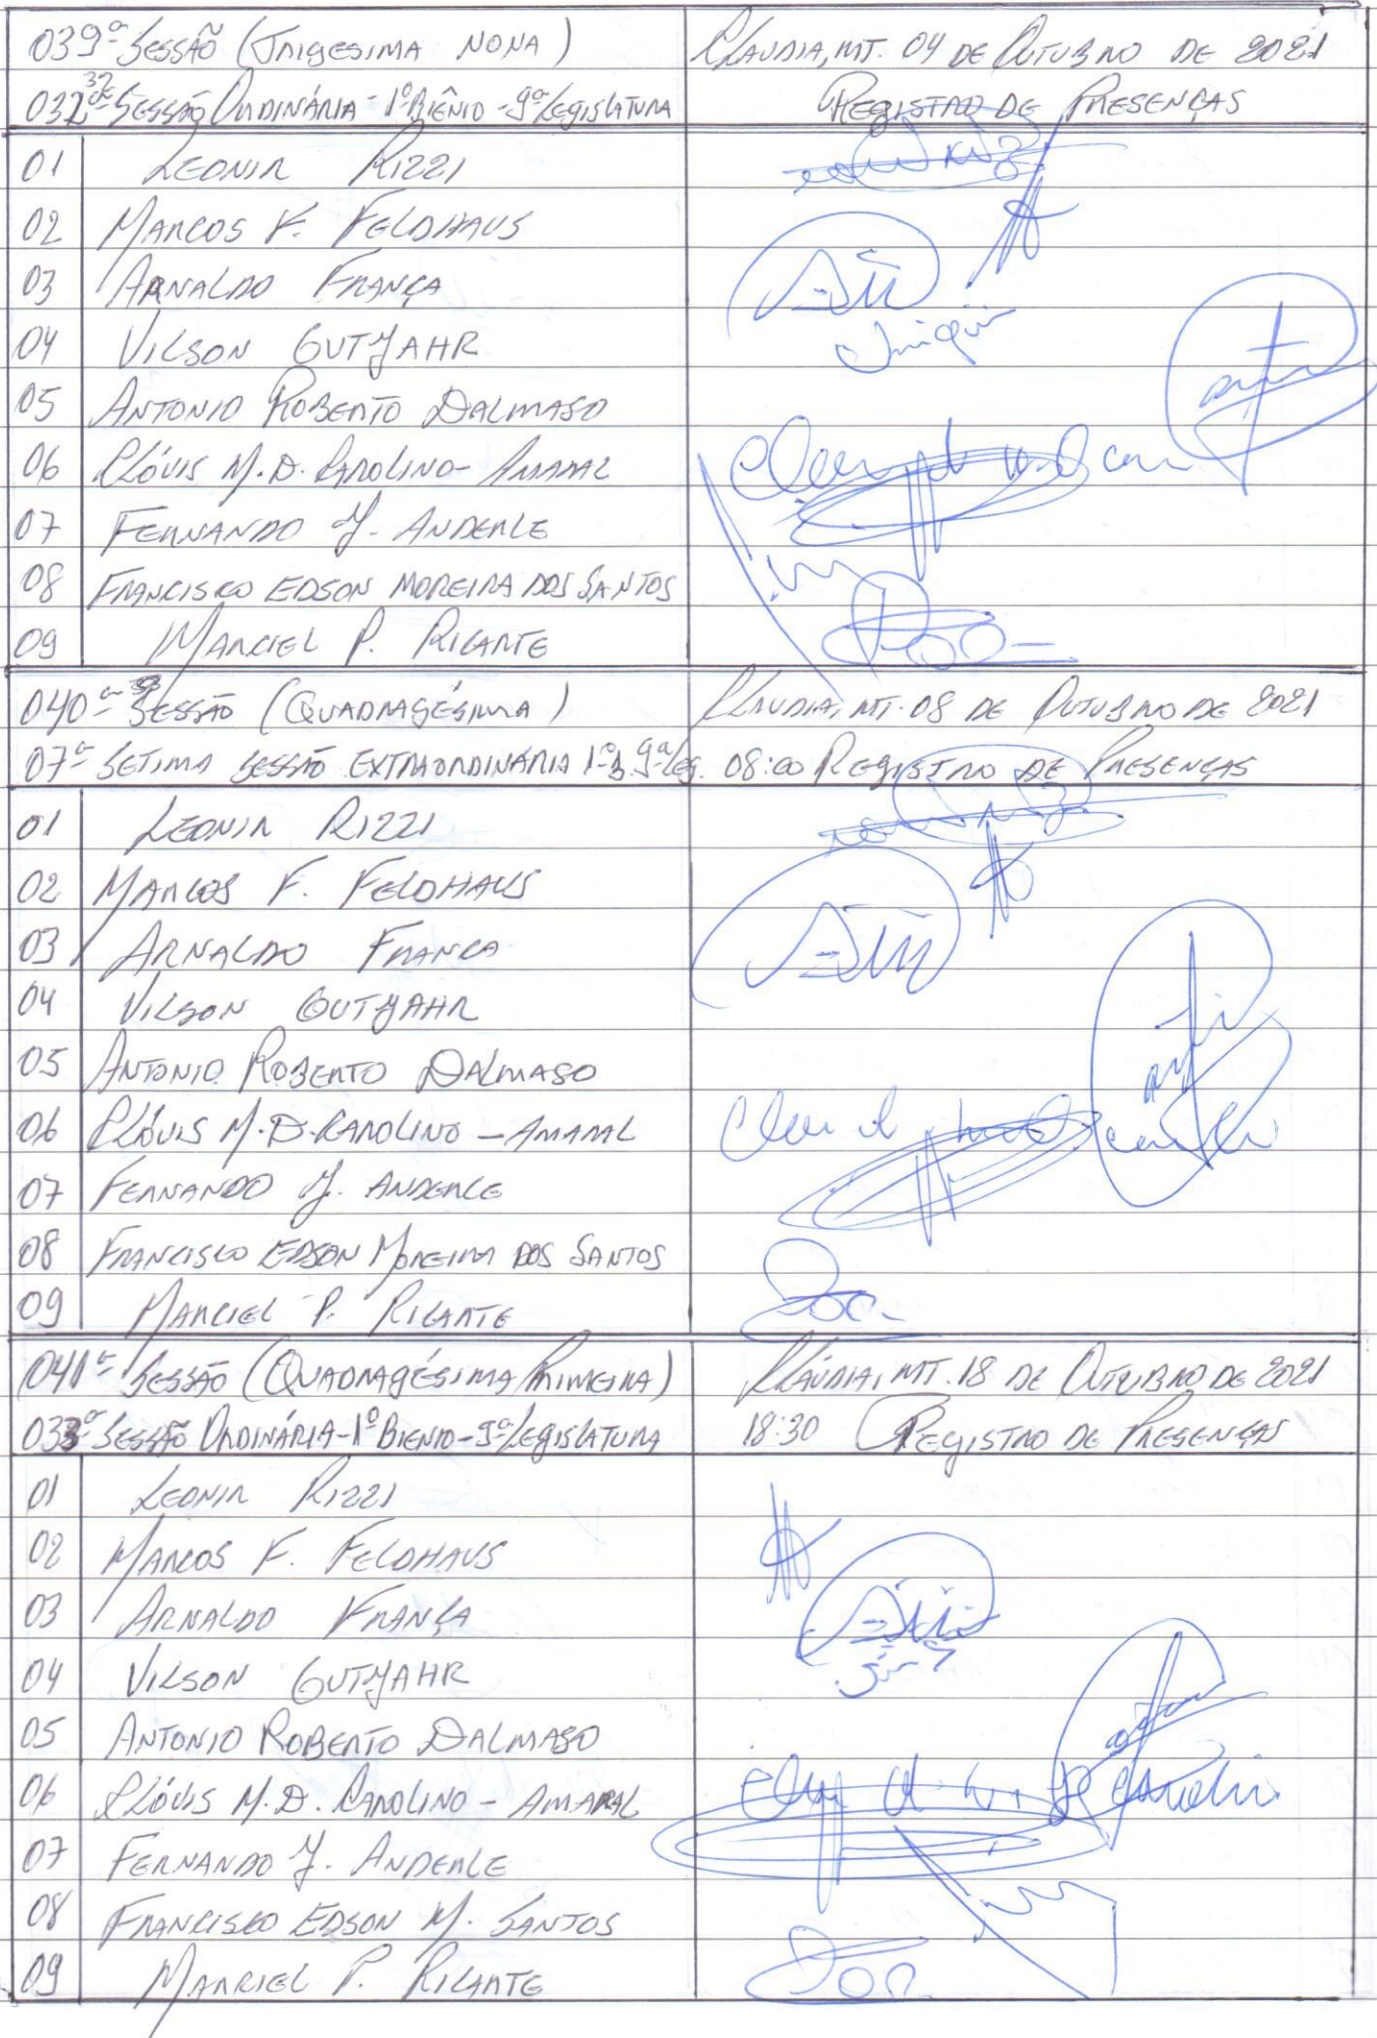 039ª Sessão (Trigesima Nona)
Cláudia, MT. 04 de Outubro de 2021
032ª Sessão Ordinária - 1º Biênio - 9ª Legislatura
Registro de Presenças
01 Leonir Rizzi
02 Marcos F. Feldhaus
03 Arnaldo França
04 Vilson Gutjahr
05 Antonio Roberto Dalmaso
06 Clóvis M. D. Carolino - Amaral
07 Fernando J. Anderle
08 Francisco Edson Moreira dos Santos
09 Marciel P. Ricarte
040ª Sessão (Quadragésima)
Cláudia, MT. 08 de Outubro de 2021
07ª Setima Sessão Extraordinária 1º B. 9ª Leg.
08:00 Registro de Presenças
01 Leonir Rizzi
02 Marcos F. Feldhaus
03 Arnaldo Franca
04 Vilson Gutjahr
05 Antonio Roberto Dalmaso
06 Clóvis M. D. Carolino - Amaral
07 Fernando J. Anderle
08 Francisco Edson Moreira dos Santos
09 Marciel P. Ricarte
041ª Sessão (Quadragésima Primeira)
Cláudia, MT. 18 de Outubro de 2021
033ª Sessão Ordinária - 1º Bienio - 9ª Legislatura
18:30 Registro de Presenças
01 Leonir Rizzi
02 Marcos F. Feldhaus
03 Arnaldo França
04 Vilson Gutjahr
05 Antonio Roberto Dalmaso
06 Clóvis M. D. Carolino - Amaral
07 Fernando J. Anderle
08 Francisco Edson M. Santos
09 Marciel P. Ricarte